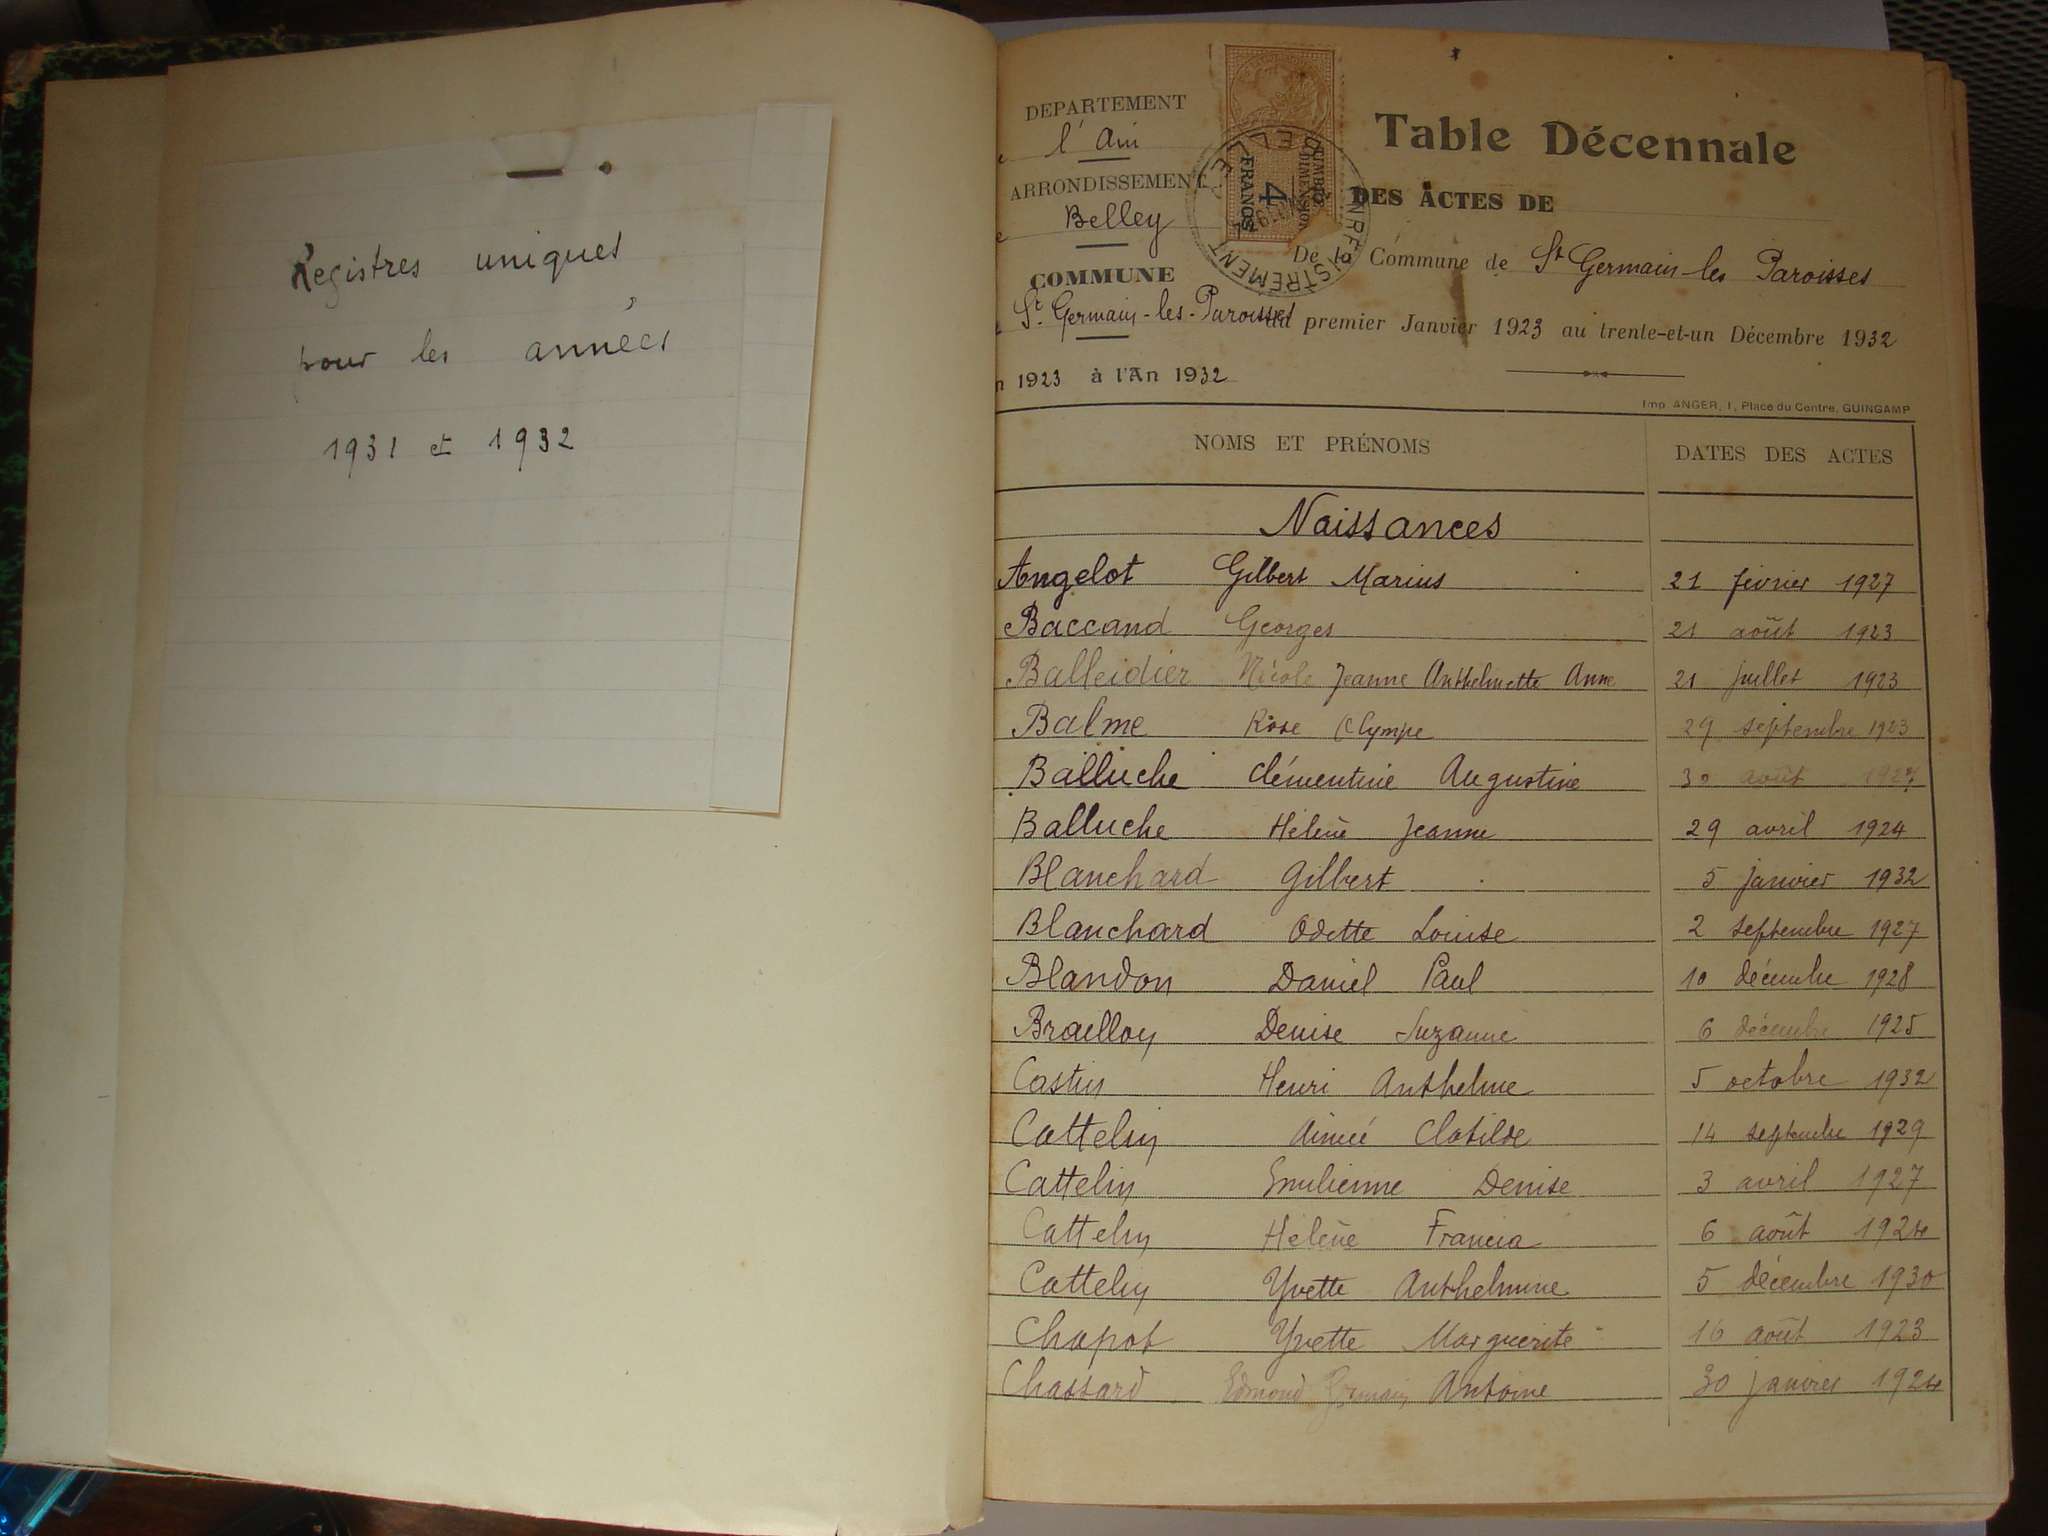 Registres uniques
pour les années
1931 et 1932
DEPARTEMENT
l'Ain
ARRONDISSEMENT
Belley
COMMUNE
St. Germain-les-Paroisses
1923 à l'An 1932
4
FRANCS
DIMENSION
Table Décennale
DES ACTES DE
De la Commune de St Germain-les Paroisses
du premier Janvier 1923 au trente-et-un Décembre 1932
Imp. ANGER, 1, Place du Centre, GUINGAMP
NOMS ET PRÉNOMS DATES DES ACTES
Naissances
Angelot Gilbert Marius 21 février 1927
Baccand Georges 21 août 1923
Balleidier Nicole Jeanne Anthelmette Anne 21 juillet 1923
Balme Rose Olympe 29 septembre 1923
Balluche Clémentine Augustine 30 août 1927
Balluche Hélène Jeanne 29 avril 1924
Blanchard Gilbert 5 janvier 1932
Blanchard Odette Louise 2 septembre 1927
Blandon Daniel Paul 10 décembre 1928
Denise Suzanne 6 décembre 1925
Castin Henri Anthelme 5 octobre 1932
Cattelin Aimée Clotilde 14 septembre 1929
Cattelin Emilienne Denise 3 avril 1927
Cattelin Hélène Francia 6 août 1924
Cattelin Yvette Anthelmine 5 décembre 1930
Chapot Yvette Marguerite 16 août 1923
Chassard Edmond Germain Antoine 30 janvier 1924